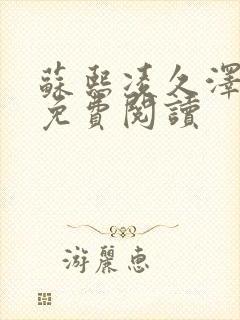 蘇熙凌久澤
免費閱讀
游麗惠